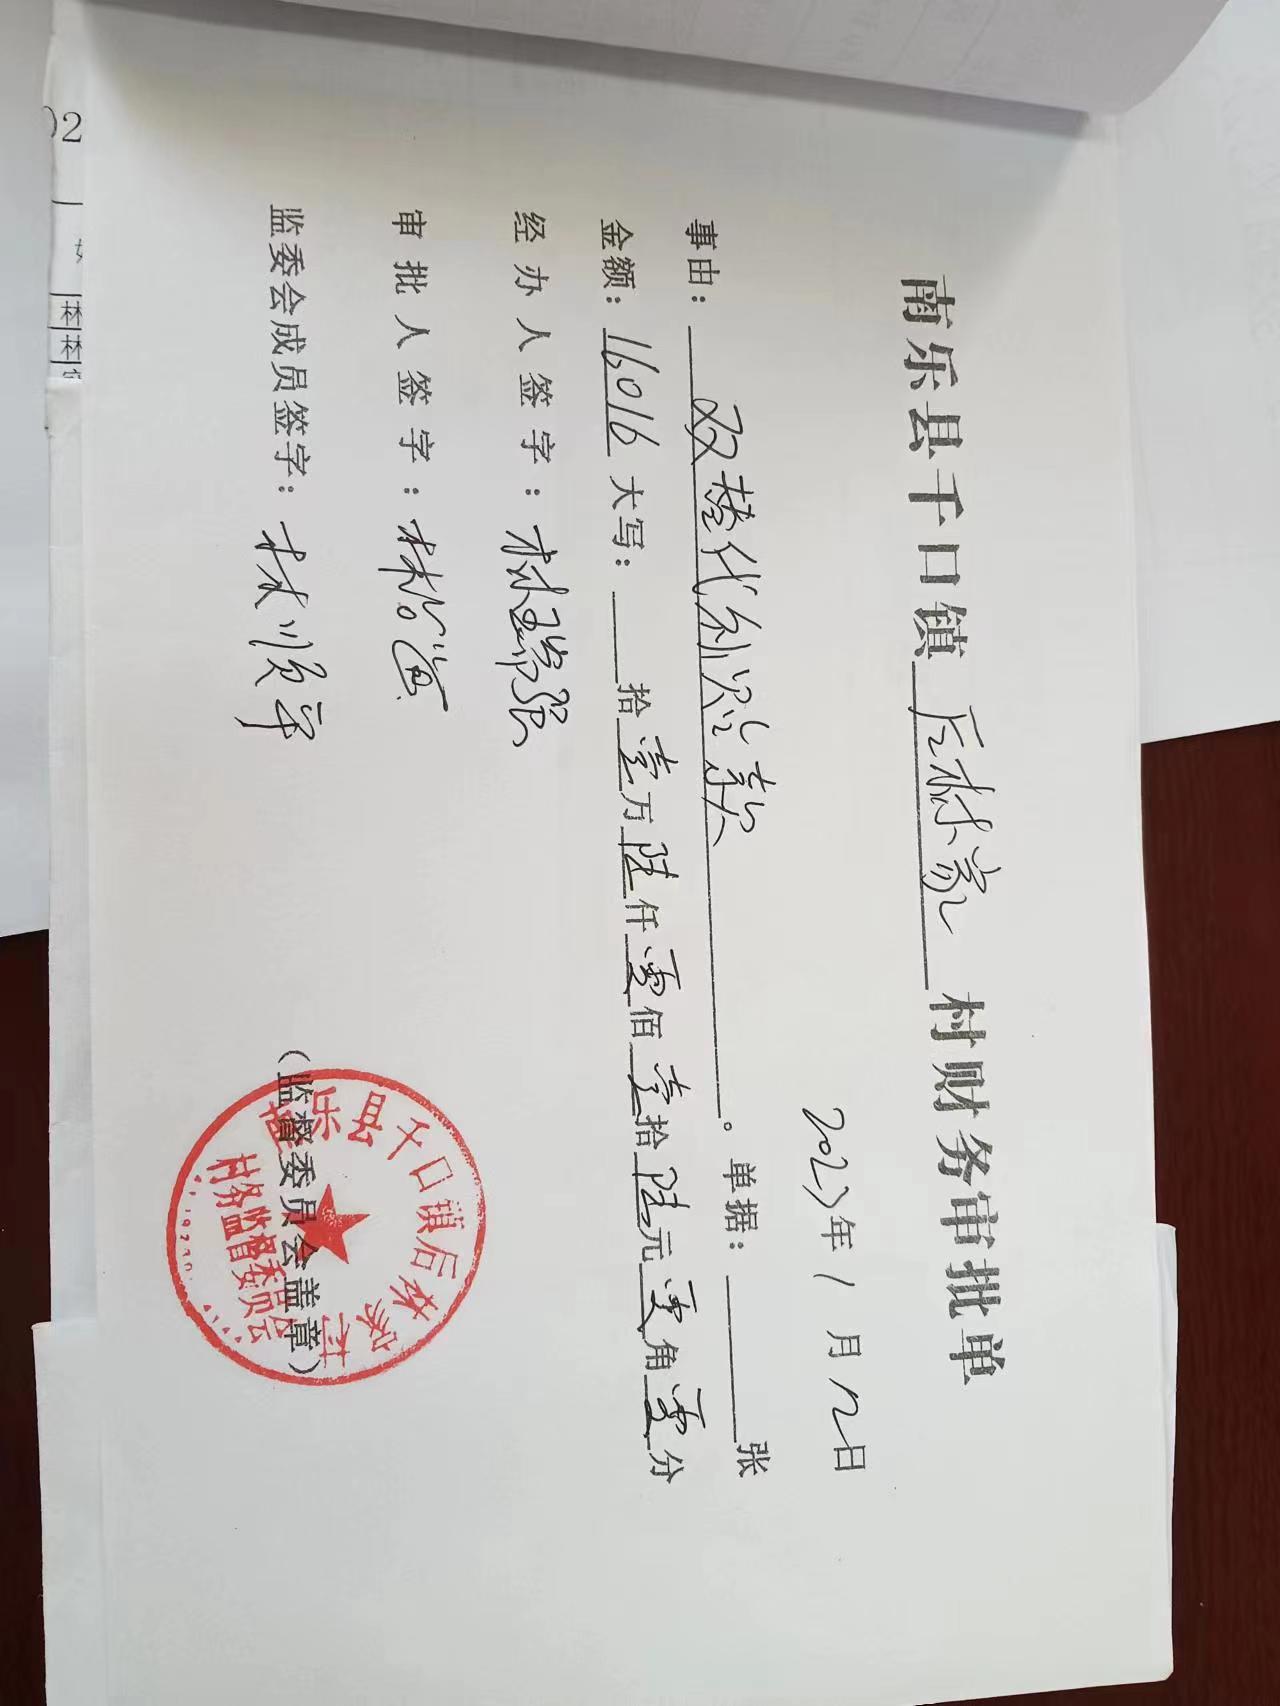 南乐县千口镇后林家村财务审批单
2023年1月12日
事由：双替代补贴款。单据：张
金额：16016大写：拾壹万陆仟零佰壹拾陆元零角零分
经办人签字：林瑞强
审批人签字：林
监委会成员签字：林顺军
（监督委员会盖章）
南乐县千口镇后林家村
村务监督委员会
02
林
林